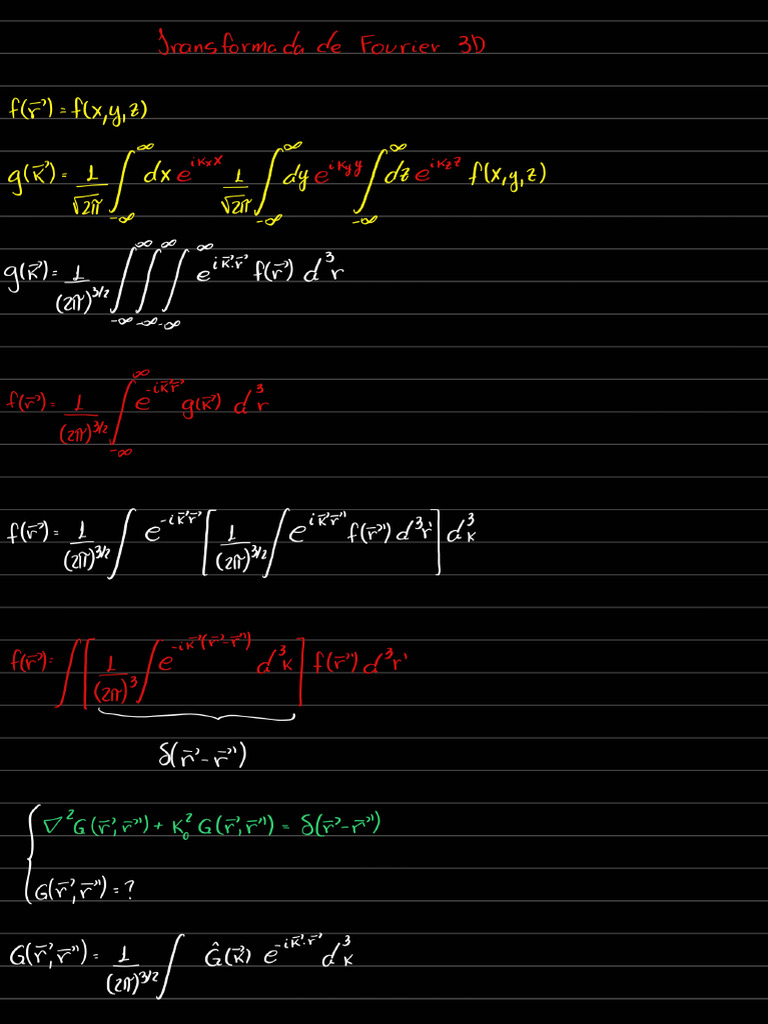 Transformada de Fourier 3D
f(r⃗) = f(x,y,z)
g(k⃗) = 1/√2π ∫_{-∞}^{∞} dx e^{ikₓx} 1/√2π ∫_{-∞}^{∞} dy e^{ik_y y} ∫_{-∞}^{∞} dz e^{ik_z z} f(x,y,z)
g(k⃗) = 1/(2π)^{3/2} ∫_{-∞}^{∞} ∫_{-∞}^{∞} ∫_{-∞}^{∞} e^{i k⃗·r⃗} f(r⃗) d³r
f(r⃗) = 1/(2π)^{3/2} ∫_{-∞}^{∞} e^{-i k⃗ r⃗} g(k⃗) d³r
f(r⃗) = 1/(2π)^{3/2} ∫ e^{-i k⃗ r⃗} [ 1/(2π)^{3/2} ∫ e^{i k⃗ r⃗'} f(r⃗') d³r' ] d³k
f(r⃗) = ∫ [ 1/(2π)³ ∫ e^{-i k⃗ (r⃗ - r⃗')} d³k ] f(r⃗') d³r'
δ(r⃗ - r⃗')
∇²G(r⃗, r⃗') + k₀² G(r⃗, r⃗') = δ(r⃗ - r⃗')
G(r⃗, r⃗') = ?
G(r⃗, r⃗') = 1/(2π)^{3/2} ∫ Ĝ(k⃗) e^{-i k⃗·r⃗} d³k